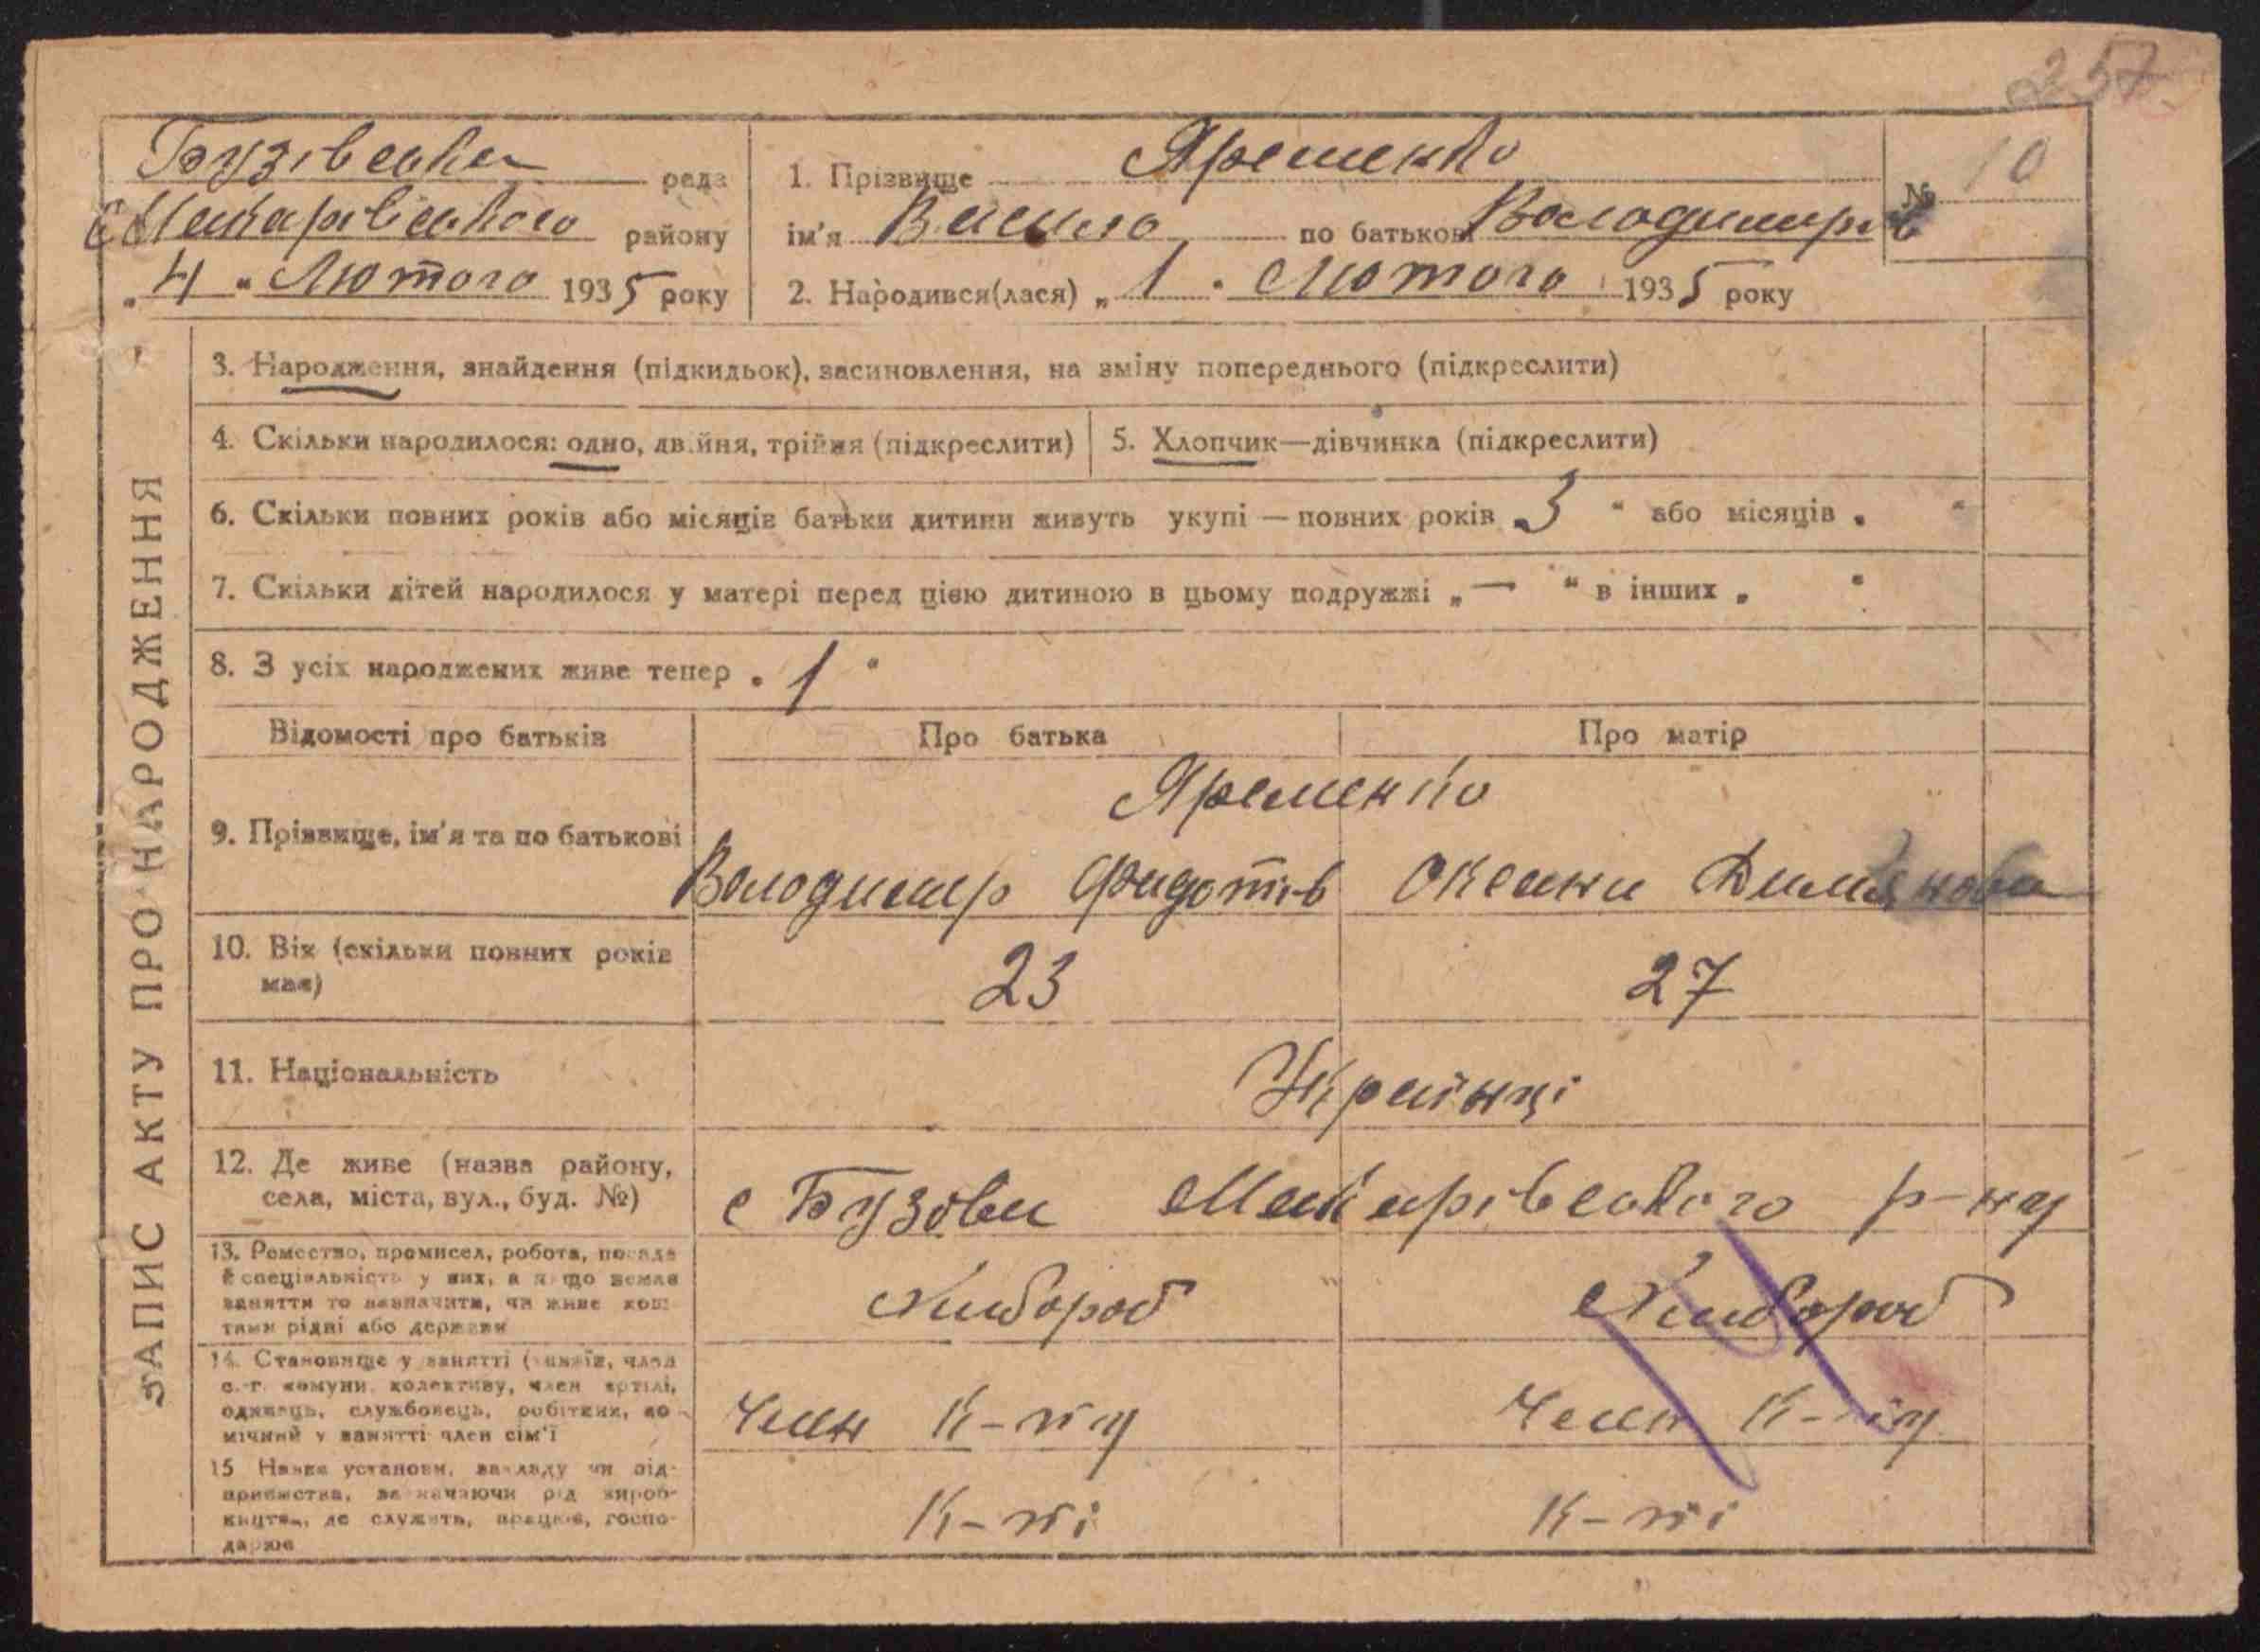 257
Бузівська рада
Макарівського району
„4" Лютого 1935 року
1. Прізвище Яременко
ім'я Василь по батькові Володимирів
№ 10
2. Народився(лася) „1" Лютого 1935 року
ЗАПИС АКТУ ПРО НАРОДЖЕННЯ
3. Народження, знайдення (підкидьок), засиновлення, на зміну попереднього (підкреслити)
4. Скільки народилося: одно, двійня, трійня (підкреслити)
5. Хлопчик—дівчинка (підкреслити)
6. Скільки повних років або місяців батьки дитини живуть укупі — повних років „3" або місяців „ "
7. Скільки дітей народилося у матері перед цією дитиною в цьому подружжі „—" в інших „ "
8. З усіх народжених живе тепер „1"
Відомості про батьків Про батька Про матір
9. Прізвище, ім'я та по батькові
Яременко
Володимир Федотів Оксана Дем'янова
10. Вік (скільки повних років
має)
23 27
11. Національність
Українці
12. Де живе (назва району,
села, міста, вул., буд. №)
с Бузова Макарівського р-ну
13. Ремество, промисел, робота, посада
й спеціяльність у них, а якщо немає
заняття то зазначити, чи живе кош-
тами рідні або держави
Хлібороб Хлібороб
14. Становище у занятті (хазяїн, член
с.-г. комуни, колективу, член артілі,
одинець, службовець, робітник, по-
мічний у занятті член сім'ї
Член К-пу Член К-пу
15 Назва установи, закладу чи під-
приємства, зазначаючи рід вироб-
ництва, де служить, працює, госпо-
дарює
К-пі К-пі